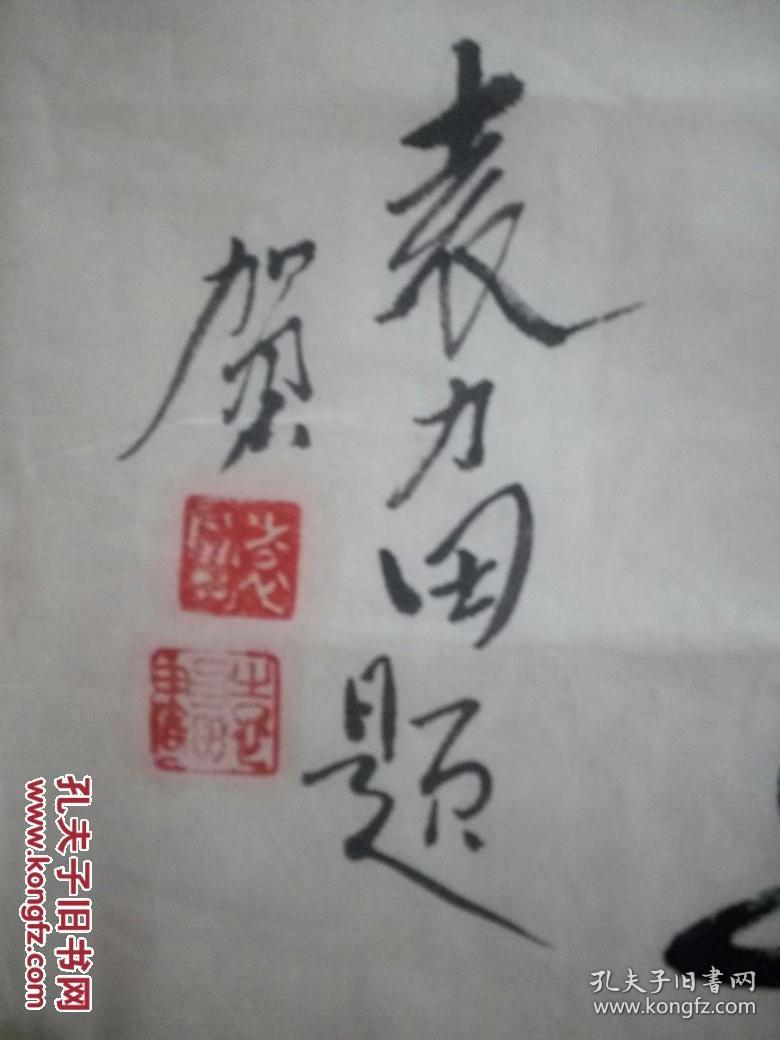 袁力田题
贺
孔夫子旧书网
www.kongfz.com
孔夫子旧书网
www.kongfz.com